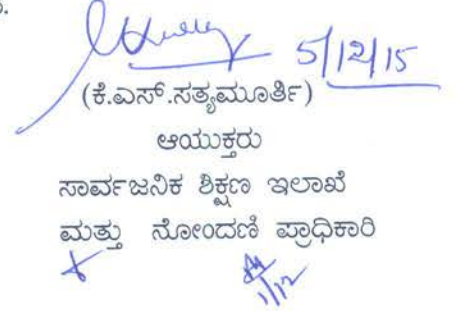 5/12/15
(ಕೆ.ಎಸ್.ಸತ್ಯಮೂರ್ತಿ)
ಆಯುಕ್ತರು
ಸಾರ್ವಜನಿಕ ಶಿಕ್ಷಣ ಇಲಾಖೆ
ಮತ್ತು ನೋಂದಣಿ ಪ್ರಾಧಿಕಾರಿ
1/12